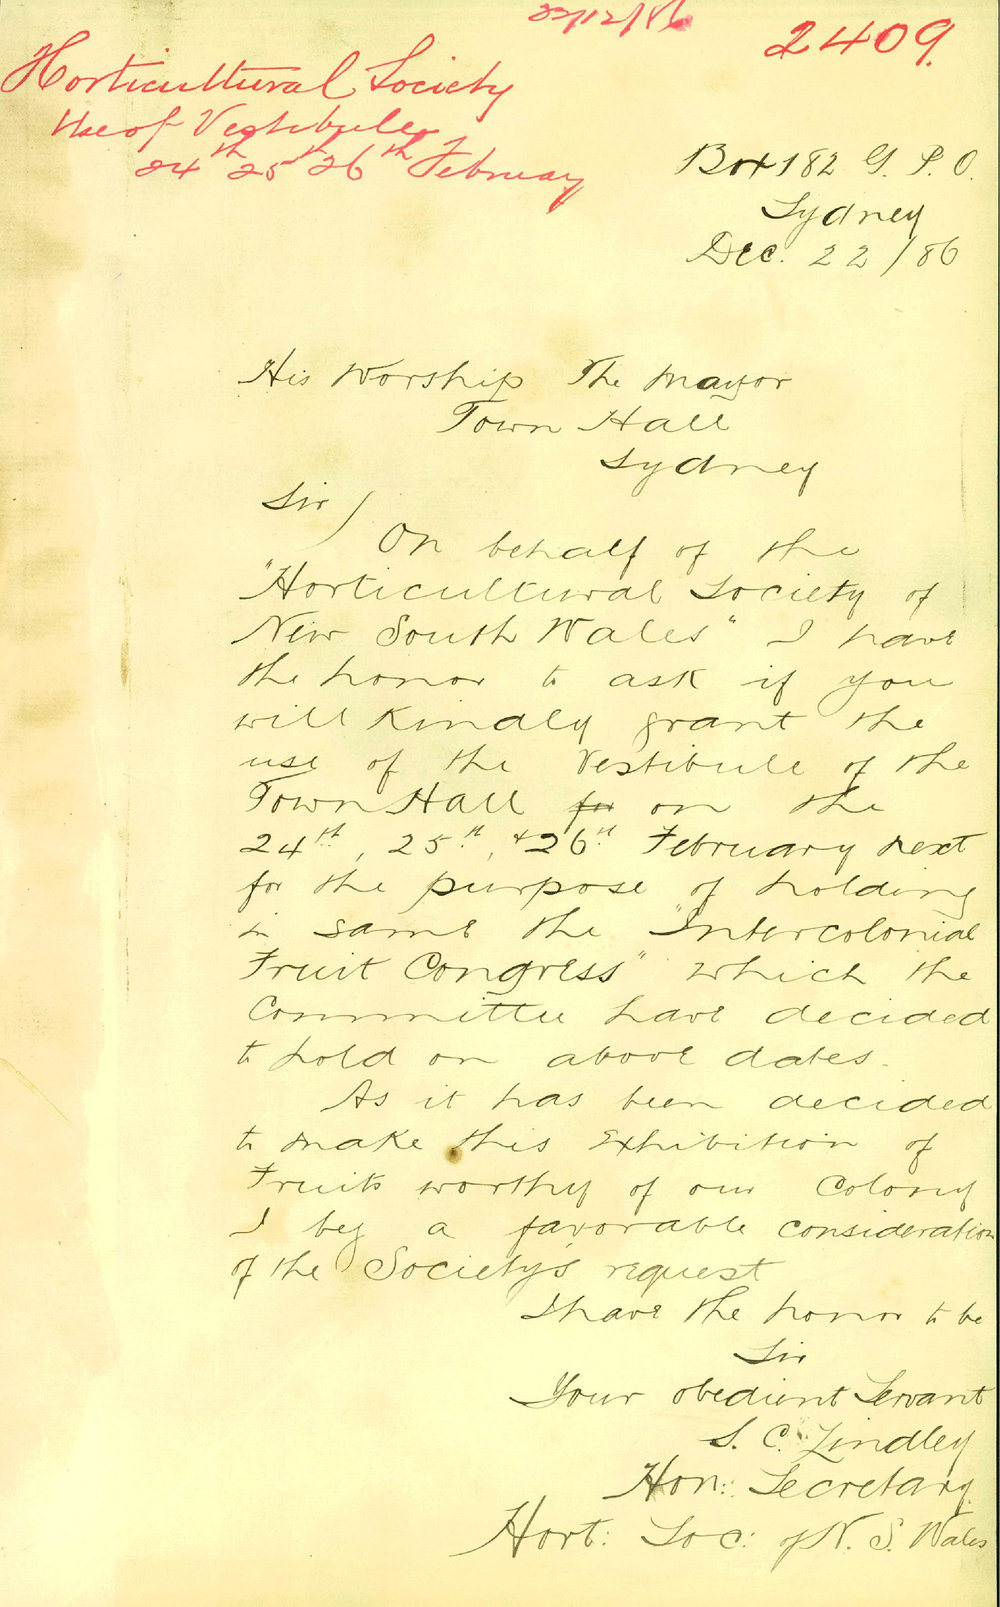 22/12/86
2409.
Horticultural Society
Use of Vestibule
24th 25th 26th February
Box 182 G. P. O.
Sydney
Dec. 22/86
His Worship The Mayor
Town Hall
Sydney
Sir)
On behalf of the
"Horticultural Society of
New South Wales" I have
the honor to ask if you
will kindly grant the
use of the Vestibule of the
Town Hall for on the
24th, 25th, + 26th February next
for the purpose of holding
in same the "Intercolonial
Fruit Congress" which the
Committee have decided
to hold on above dates.
As it has been decided
to make this Exhibition of
Fruits worthy of our Colony
I beg a favorable consideration
of the Society's request
I have the honor to be
Sir
Your obedient Servant
S. C. Lindley
Hon: Secretary.
Hort: Soc: of N. S. Wales